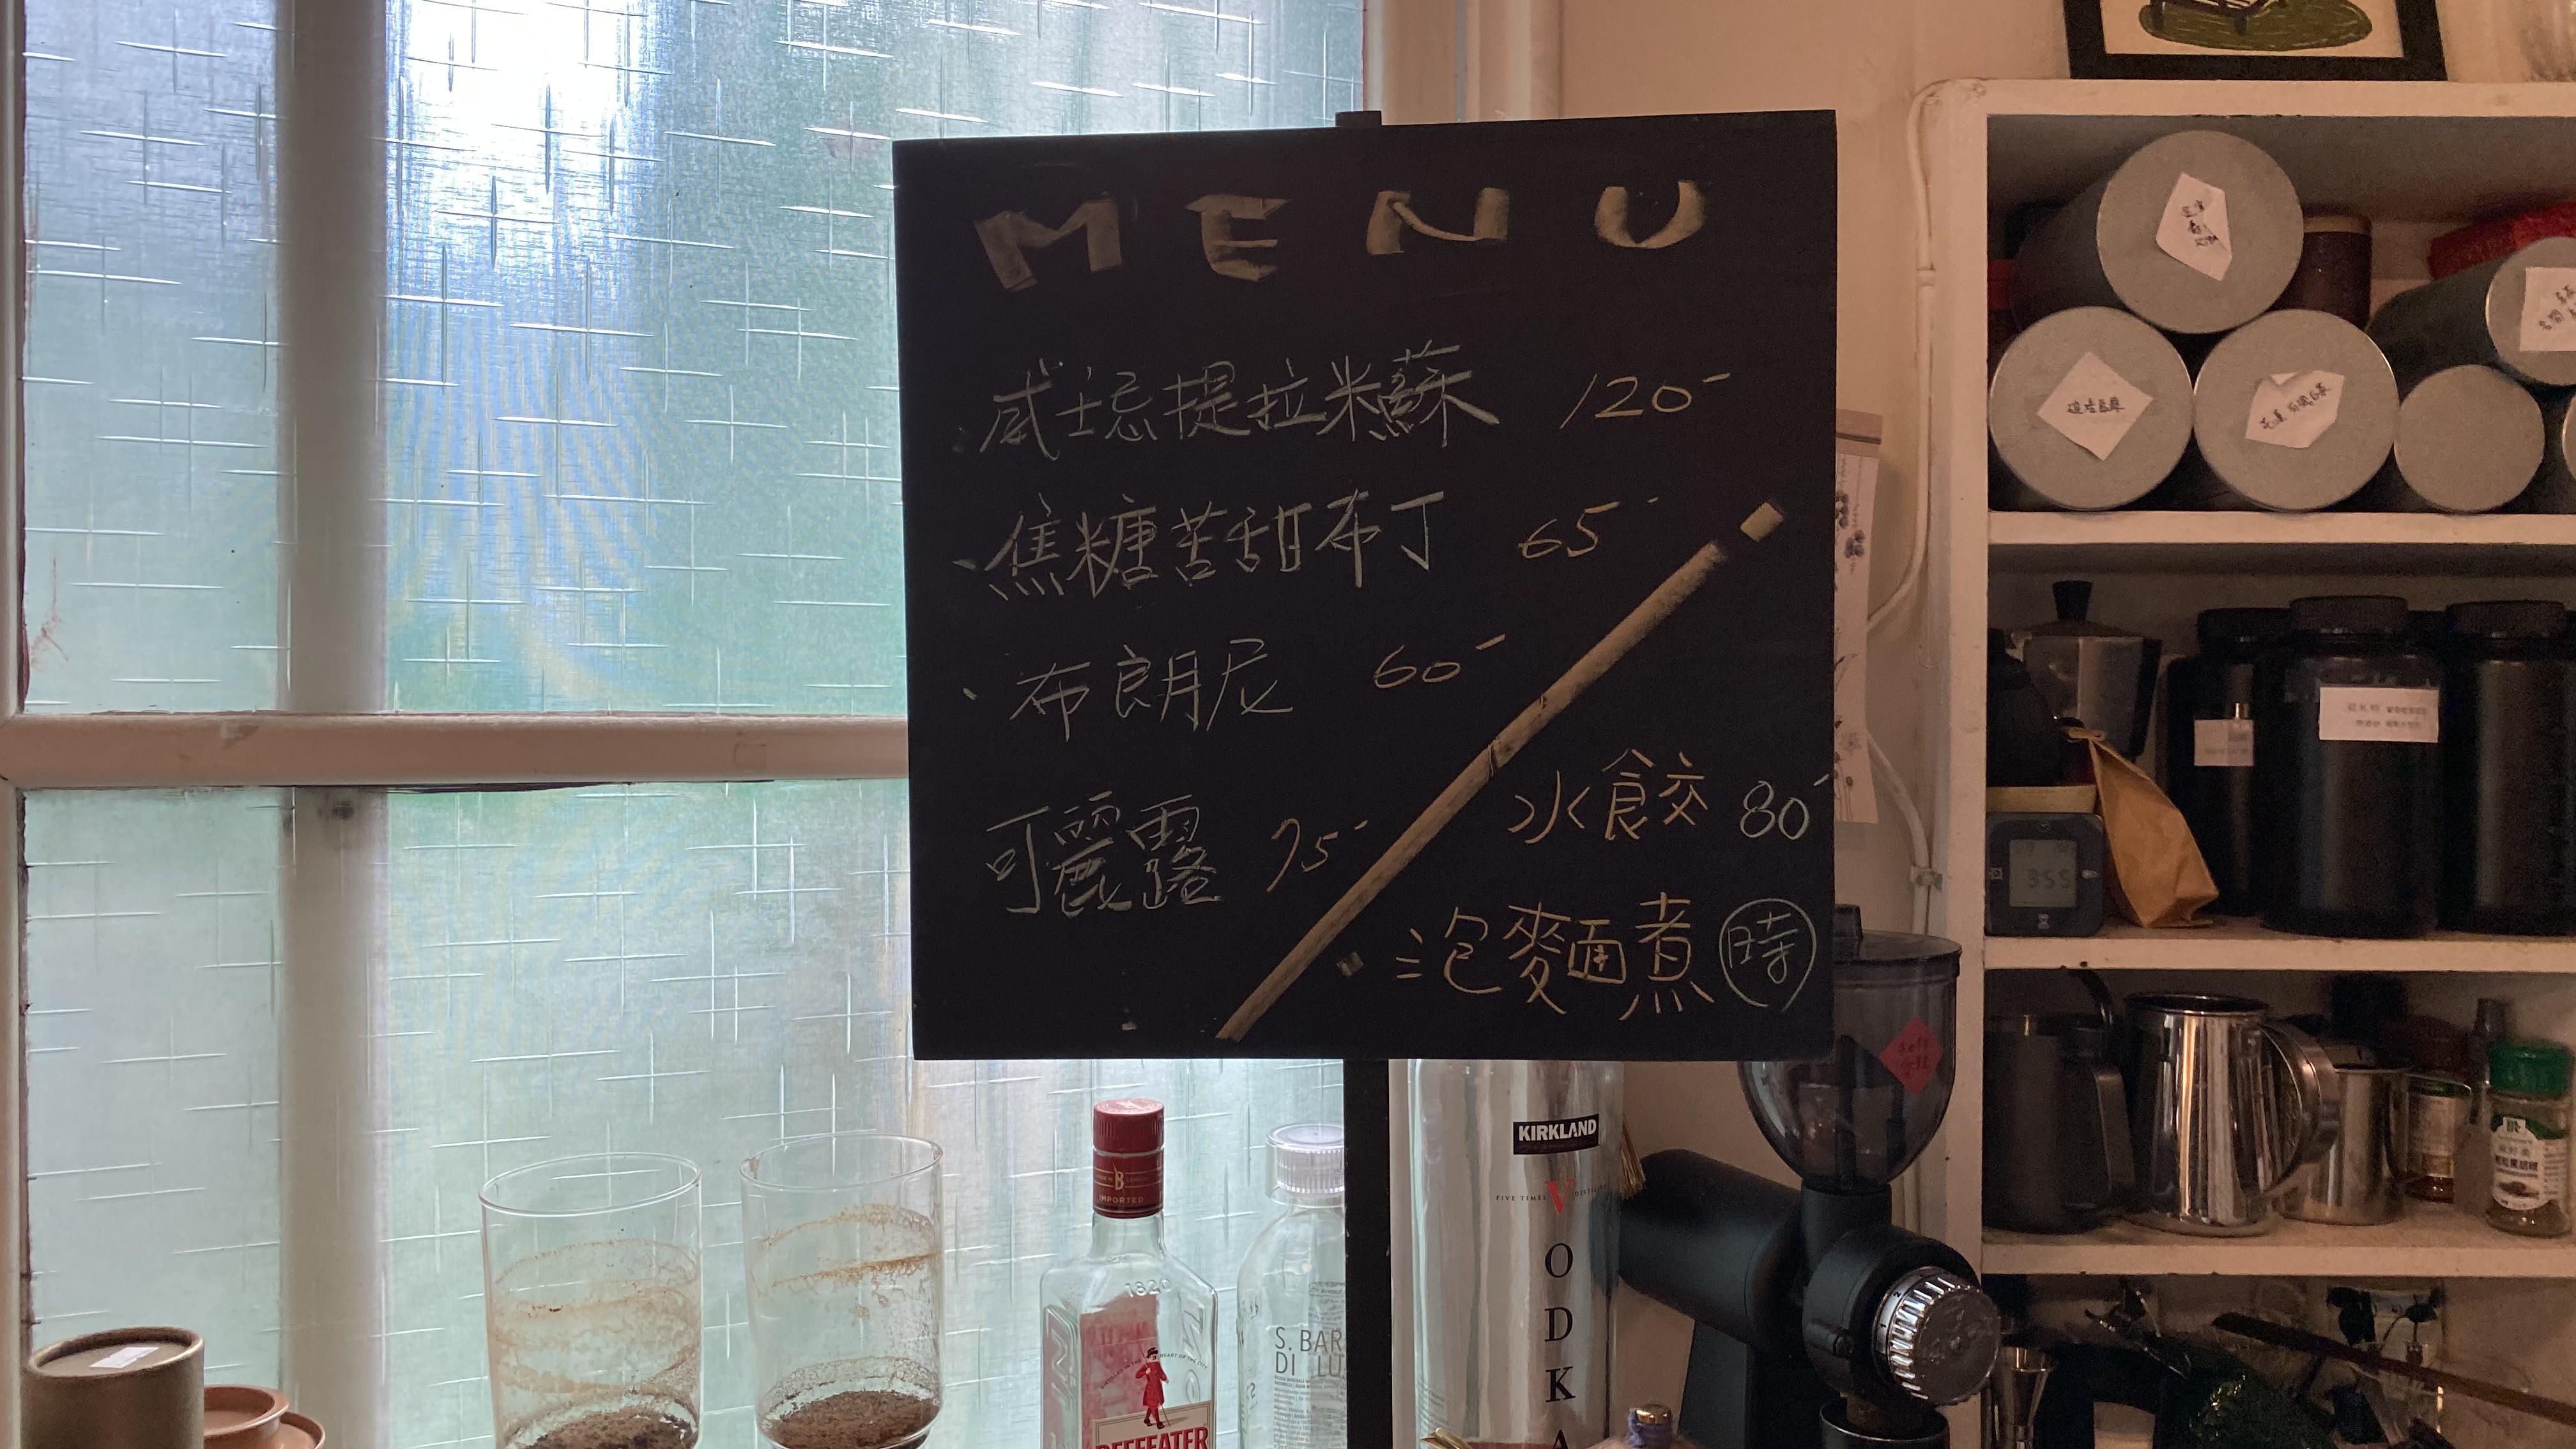 MENU
威士忌提拉米蘇 120-
·焦糖苦甜布丁 65-
·布朗尼 60-
可麗露 75-
水餃 80-
泡麵煮 時
KIRKLAND
FIVE TIMES
VODKA
B
IMPORTED
1820
BEEFEATER
S. BAR
DI LU
3:55